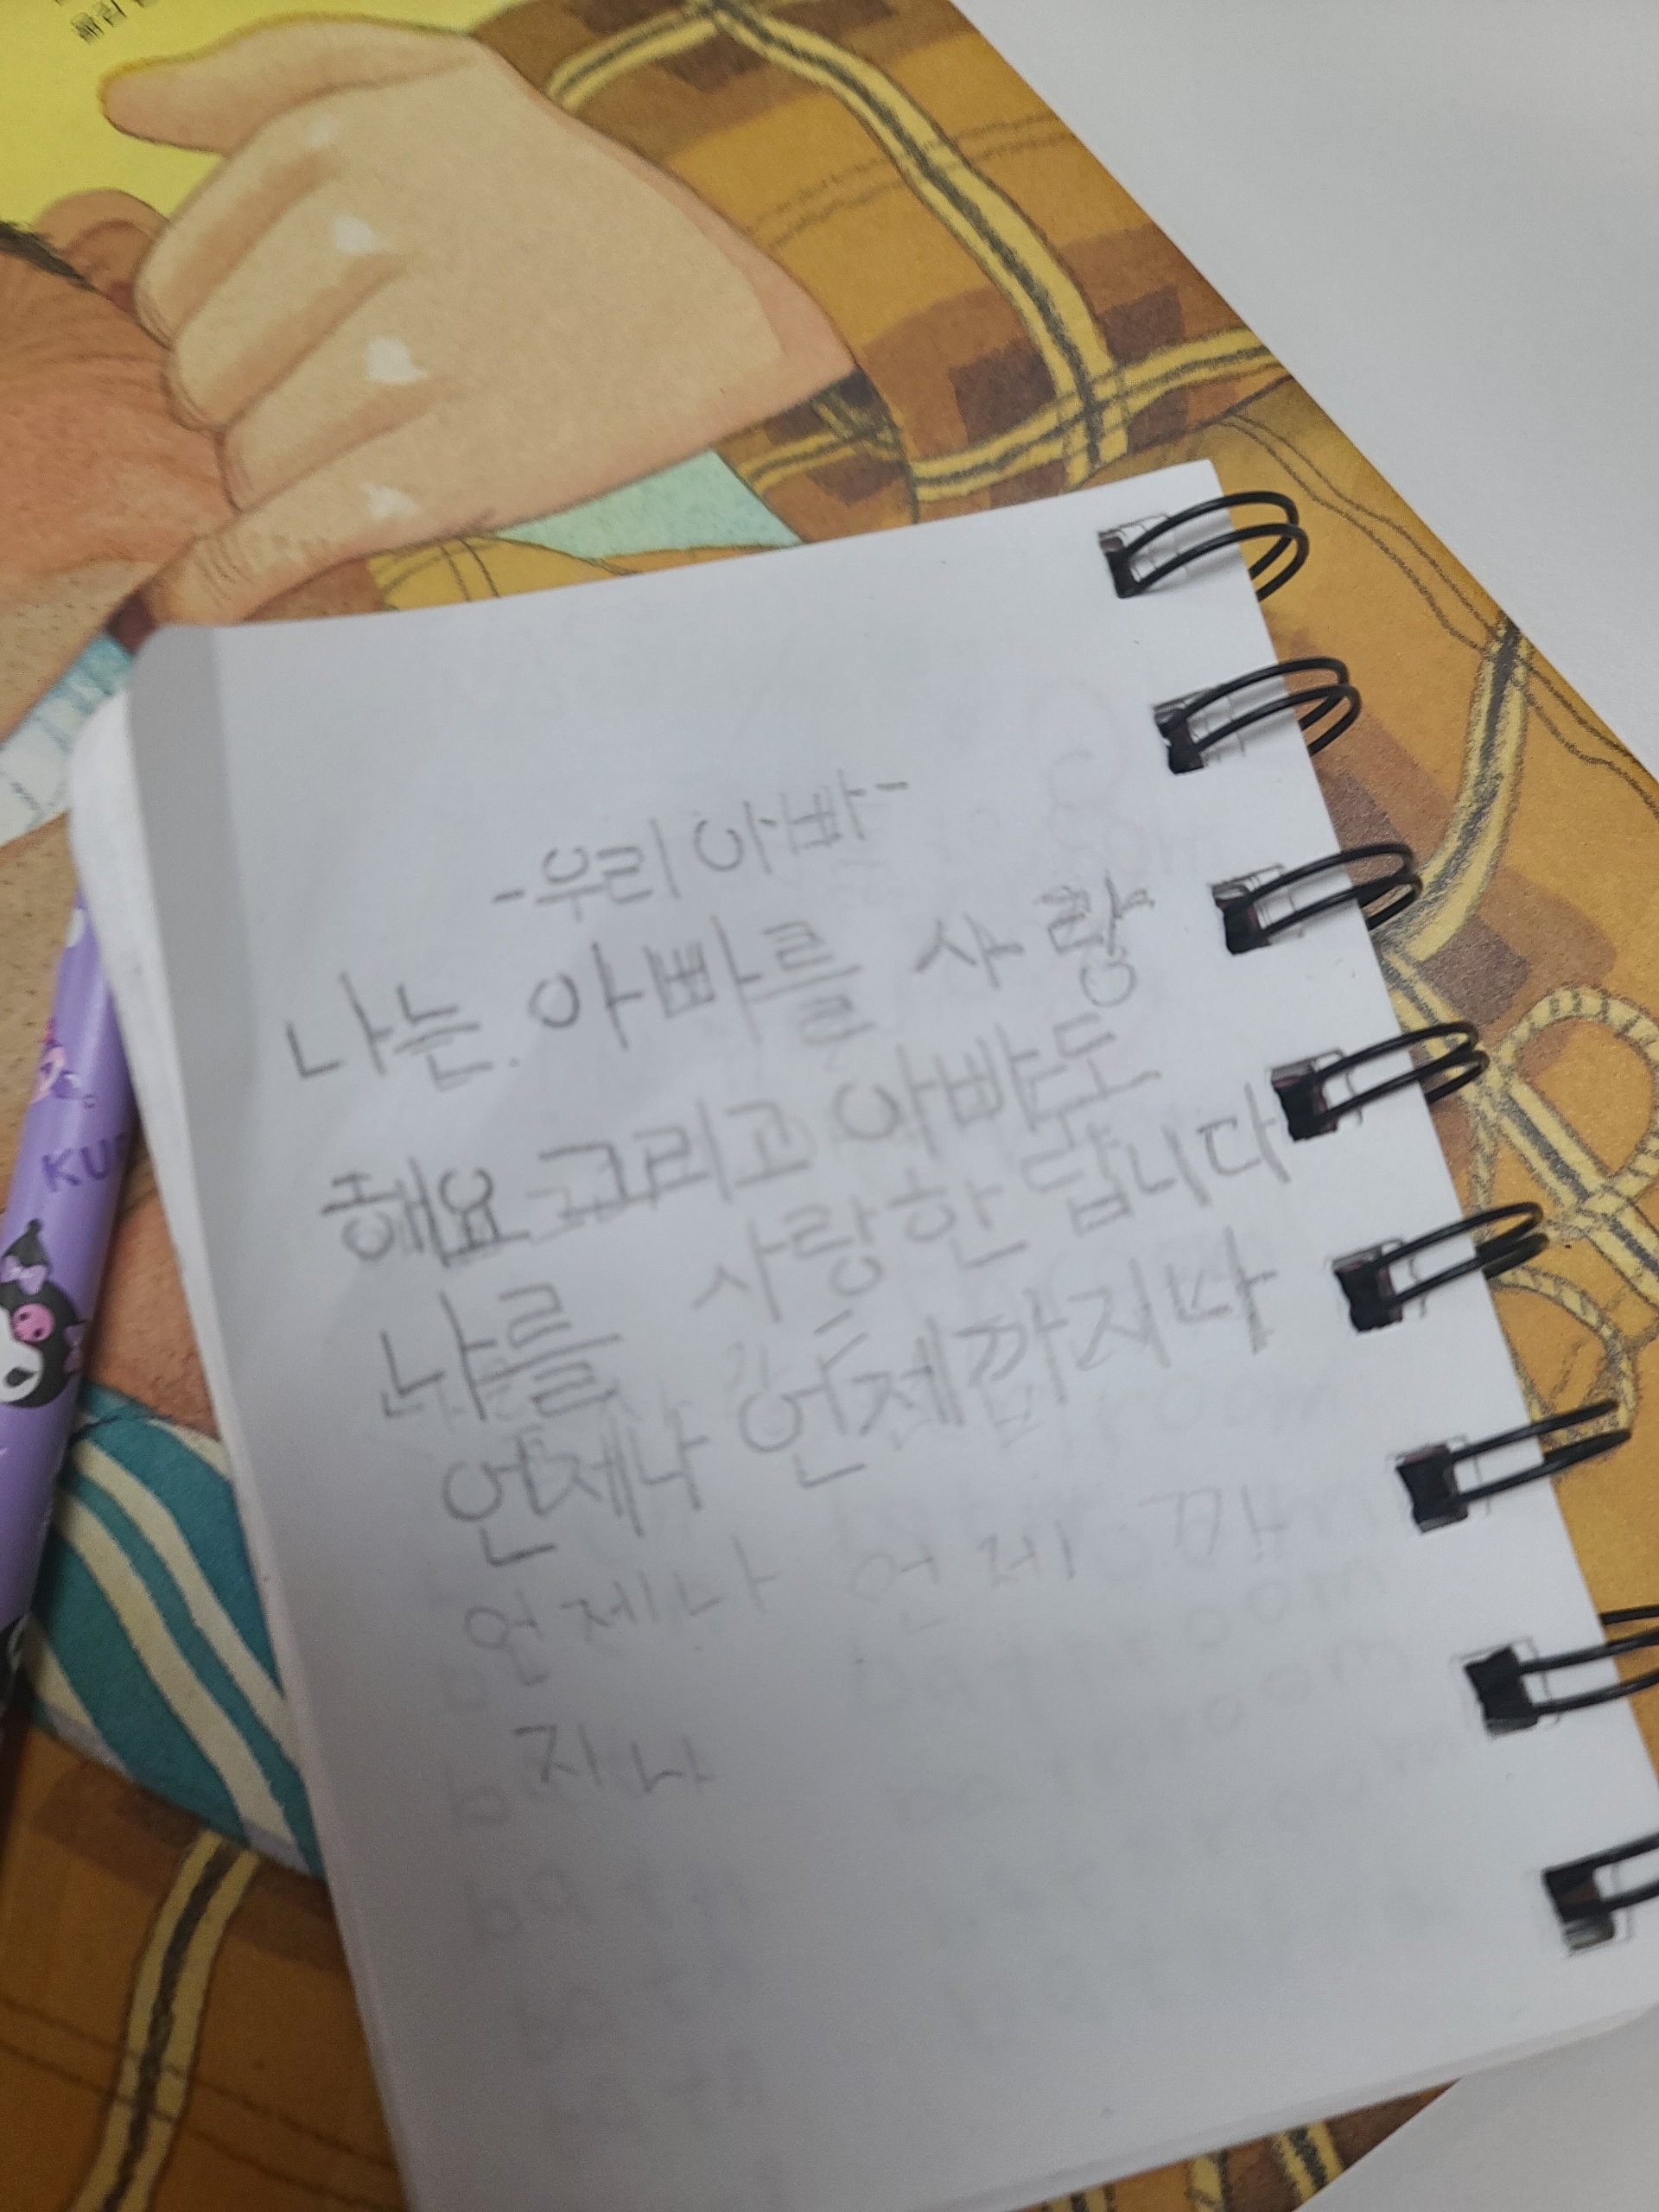 -우리 아빠-
나는 아빠를 사랑
해요 그리고 아빠도
나를 사랑한 답니다
언제나 언제까지나
언제나 언제 까
지나
KU